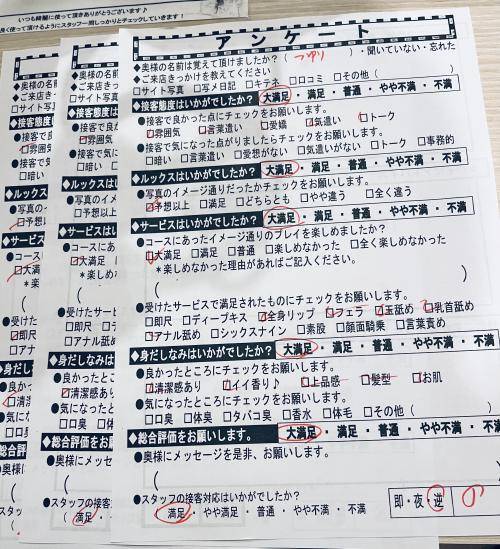 いつも綺麗に使って頂きありがとうございます♪
良く使って頂けるようにスタッフ一同しっかりとチェックしていきます!
アンケート
◆奥様の名前は覚えて頂けましたか?( つゆり )・聞いていない・忘れた
◆ご来店きっかけを教えてください
□サイト写真 □写メ日記 □キテネ □口コミ □その他(
◆接客態度はいかがでしたか? 大満足・満足・普通・やや不満・不満
●接客で良かった点にチェックをお願いします。
□雰囲気 □言葉遣い □愛嬌 □気遣い □トーク
●接客で気になった点がありましたらチェックをお願います。
□暗い □言葉遣い □愛想がない □気遣いがない □トーク □事務的
◆ルックスはいかがでしたか? 大満足・満足・普通・やや不満・不満
●写真のイメージ通りだったかチェックをお願います。
□予想以上 □満足 □どちらとも □やや違う □全く違う
◆サービスはいかがでしたか? 大満足・満足・普通・やや不満・不満
●コースにあったイメージ通りのプレイを楽しめましたか?
□大満足 □満足 □普通 □楽しめなかった □全く楽しめなかった
*楽しめなかった理由があればご記入ください。
( )
●受けたサービスで満足されたものにチェックをお願いします。
□即尺 □ディープキス □全身リップ □フェラ □玉舐め □乳首舐め
□アナル舐め □シックスナイン □素股 □顔面騎乗 □言葉責め
◆身だしなみはいかがでしたか? 大満足・満足・普通・やや不満・不満
●良かったところにチェックをお願いします。
□清潔感あり □イイ香り♪ □上品感 □髪型 □お肌
●気になったところにチェックをお願いします。
□口臭 □体臭 □タバコ臭 □香水 □体毛 □その他( )
◆総合評価をお願いします。 大満足・満足・普通・やや不満・不満
●奥様にメッセージを是非、お願いします。
(
●スタッフの接客対応はいかがでしたか?
( 満足 ・ やや満足 ・ 普通 ・ やや不満 ・ 不満
即・夜・逆